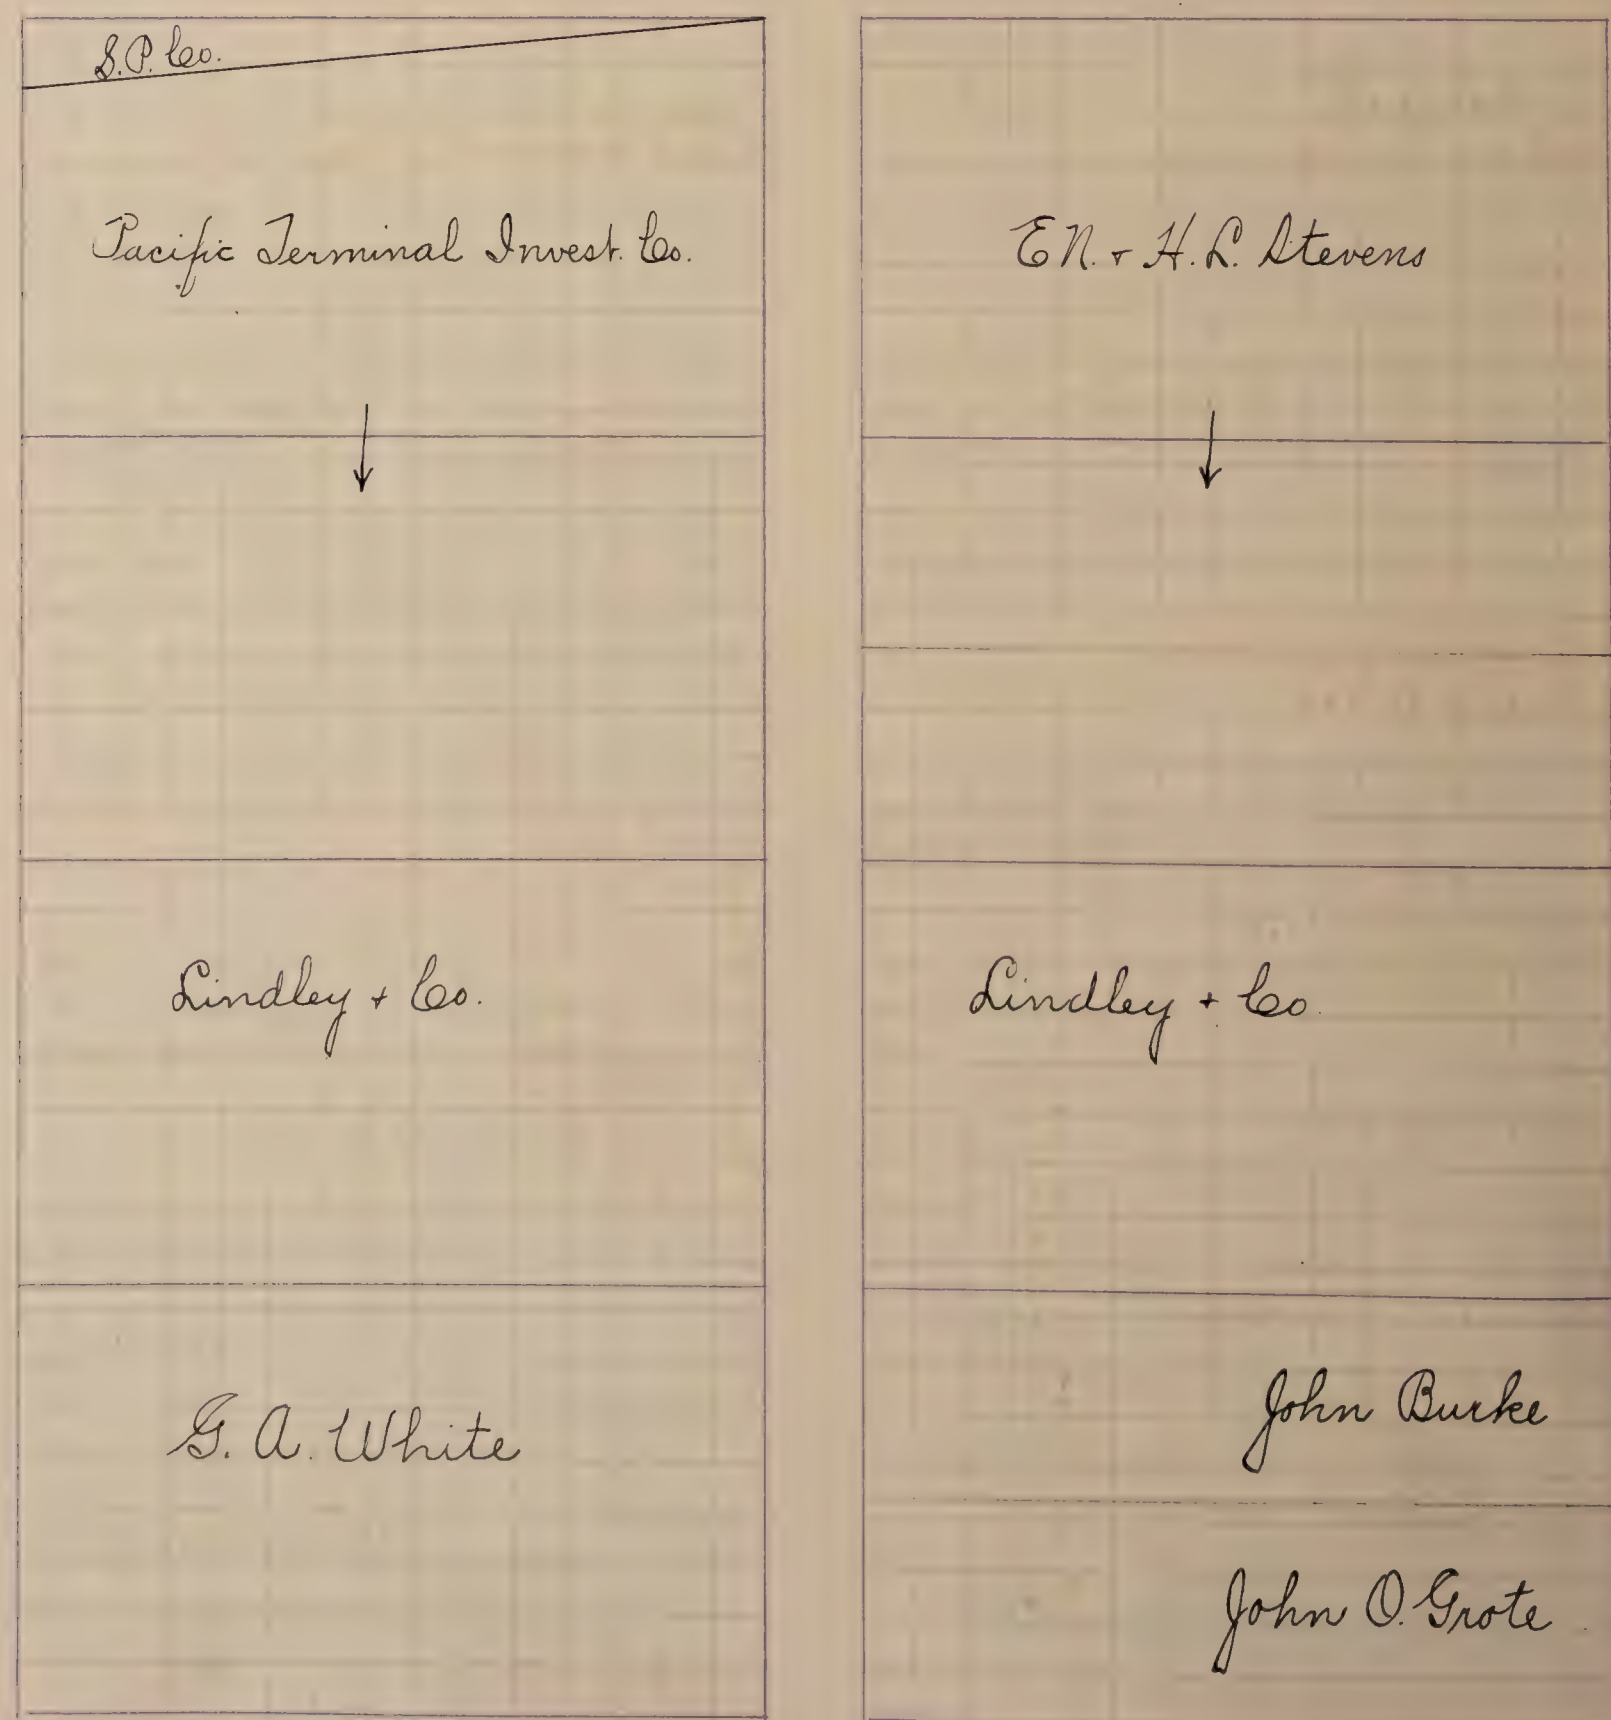 S.P. Co.
Pacific Terminal Invest. Co.
Lindley + Co.
G. A. White
E N. + H. L. Stevens
Lindley + Co.
John Burke
John O. Grote